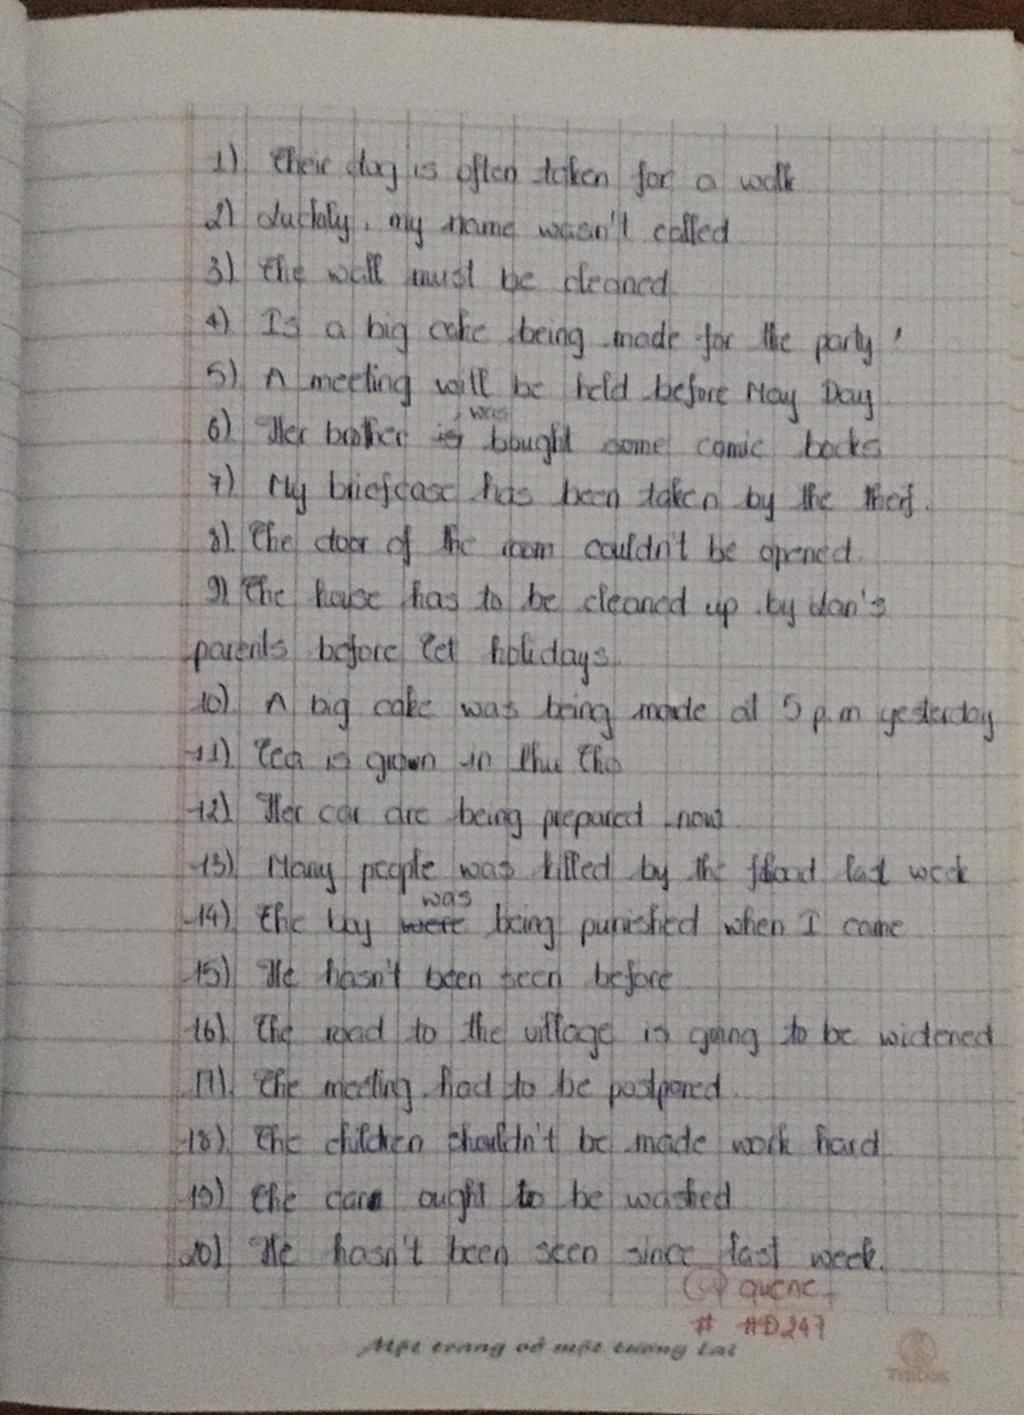 1) Their dog is often taken for a walk
2) Luckily, my name wasn't called
3) The wall must be cleaned.
4) Is a big cake being made for the party?
5) A meeting will be held before May Day
was
6) Her brother is bought some comic books
7) My briefcase has been taken by the theif.
8). The door of the room couldn't be opened.
9) The house has to be cleaned up by Lan's
parents before Tet holidays.
10) A big cake was being made at 5 p.m yesterday
11) Tea is grown in Thu Tho
12). Her car are being prepared now
13) Many people was killed by the flood last week
was
14) The boy were being punished when I came
15) He hasn't been seen before
16). The road to the village is going to be widened
17). The meeting had to be postponed.
18). The children shouldn't be made work hard
19) The cars ought to be washed
20) He hasn't been seen since last week.
# HD247
Một trang vở một tương lai